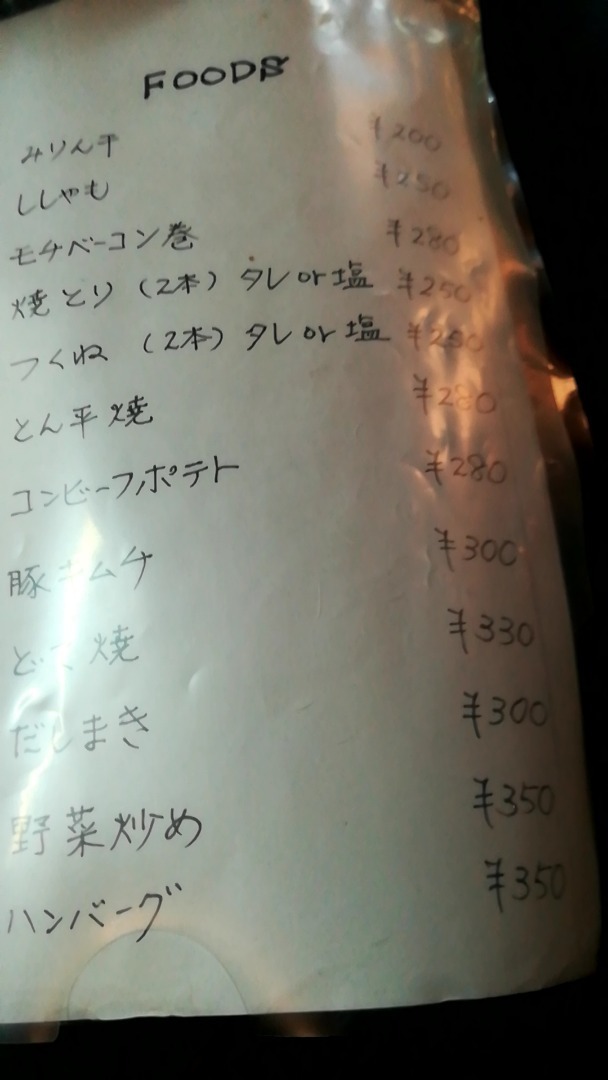 FOODS
みりん干 ¥200
ししゃも ¥250
モチベーコン巻 ¥280
焼とり (2本) タレor塩 ¥250
つくね (2本) タレor塩 ¥250
とん平焼 ¥280
コンビーフポテト ¥280
豚キムチ ¥300
どて焼 ¥330
だしまき ¥300
野菜炒め ¥350
ハンバーグ ¥350